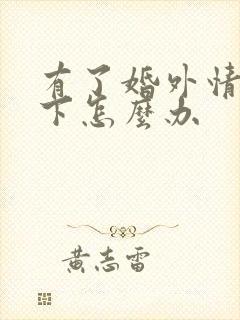 有了婚外情
下怎麼办
黄志雷